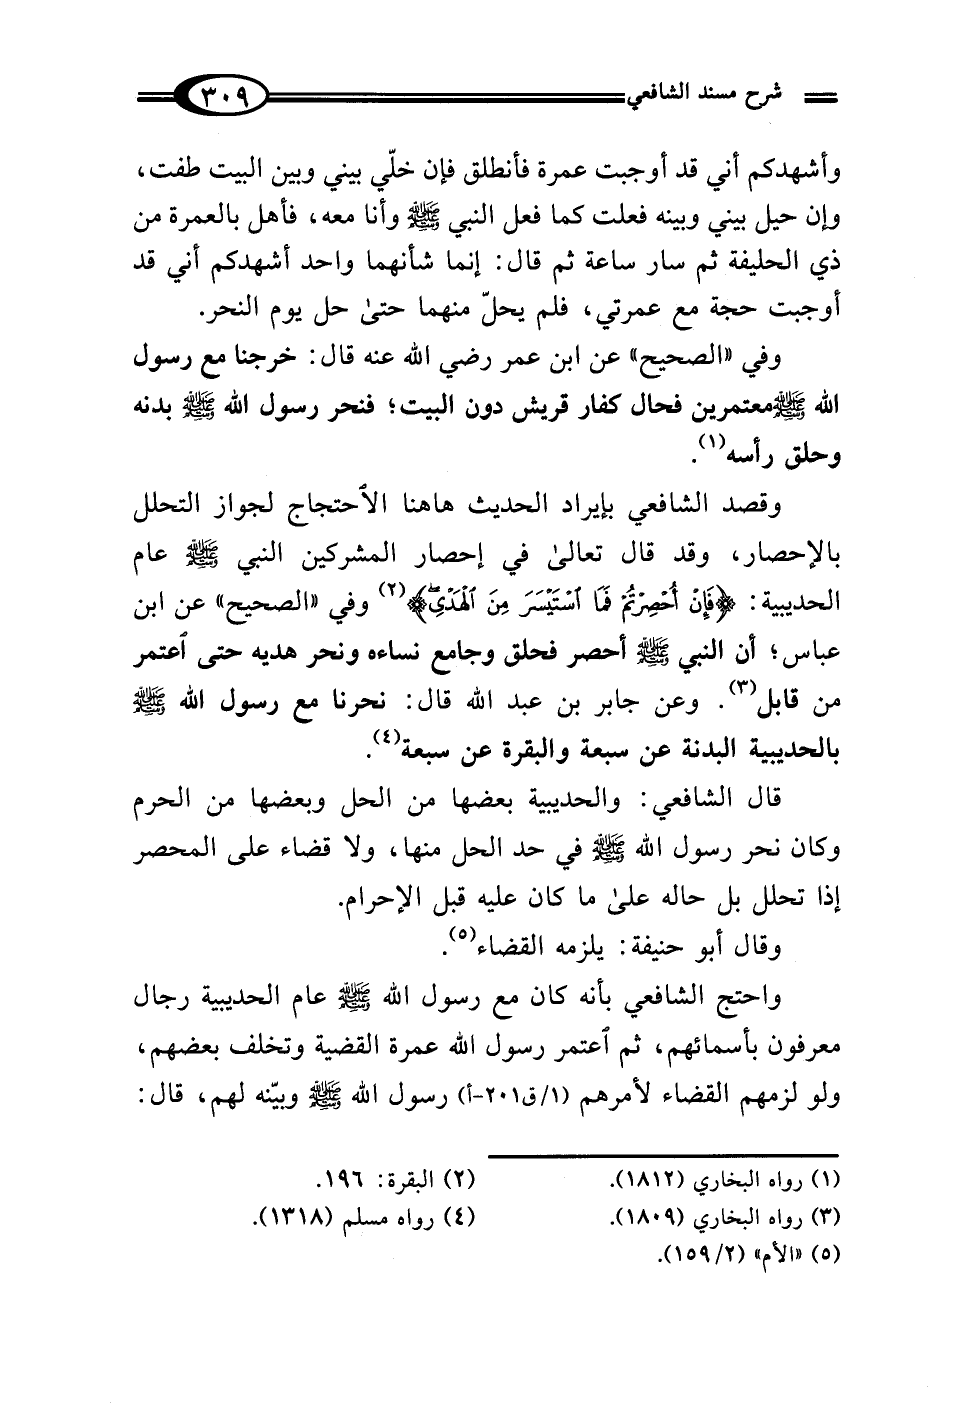 شرح مسند الشافعي ٣٠٩
وأشهدكم أني قد أوجبت عمرة فأنطلق فإن خلّي بيني وبين البيت طفت،
وإن حيل بيني وبينه فعلت كما فعل النبي ﷺ وأنا معه، فأهل بالعمرة من
ذي الحليفة ثم سار ساعة ثم قال: إنما شأنهما واحد أشهدكم أني قد
أوجبت حجة مع عمرتي، فلم يحلّ منهما حتىٰ حل يوم النحر.
وفي «الصحيح» عن ابن عمر رضي الله عنه قال: خرجنا مع رسول
الله ﷺ معتمرين فحال كفار قريش دون البيت؛ فنحر رسول الله ﷺ بدنه
وحلق رأسه(١).
وقصد الشافعي بإيراد الحديث هاهنا الاٌحتجاج لجواز التحلل
بالإحصار، وقد قال تعالىٰ في إحصار المشركين النبي ﷺ عام
الحديبية: ﴿فَإِنْ أُحْصِرْتُمْ فَمَا ٱسْتَيْسَرَ مِنَ ٱلْهَدْيِۖ﴾(٢) وفي «الصحيح» عن ابن
عباس؛ أن النبي ﷺ أحصر فحلق وجامع نساءه ونحر هديه حتى ٱعتمر
من قابل(٣). وعن جابر بن عبد الله قال: نحرنا مع رسول الله ﷺ
بالحديبية البدنة عن سبعة والبقرة عن سبعة(٤).
قال الشافعي: والحديبية بعضها من الحل وبعضها من الحرم
وكان نحر رسول الله ﷺ في حد الحل منها، ولا قضاء على المحصر
إذا تحلل بل حاله علىٰ ما كان عليه قبل الإحرام.
وقال أبو حنيفة: يلزمه القضاء(٥).
واحتج الشافعي بأنه كان مع رسول الله ﷺ عام الحديبية رجال
معرفون بأسمائهم، ثم ٱعتمر رسول الله عمرة القضية وتخلف بعضهم،
ولو لزمهم القضاء لأمرهم (١/ق٢٠١-أ) رسول الله ﷺ وبيّنه لهم، قال:
(١) رواه البخاري (١٨١٢). (٢) البقرة: ١٩٦.
(٣) رواه البخاري (١٨٠٩). (٤) رواه مسلم (١٣١٨).
(٥) «الأم» (١٥٩/٢).